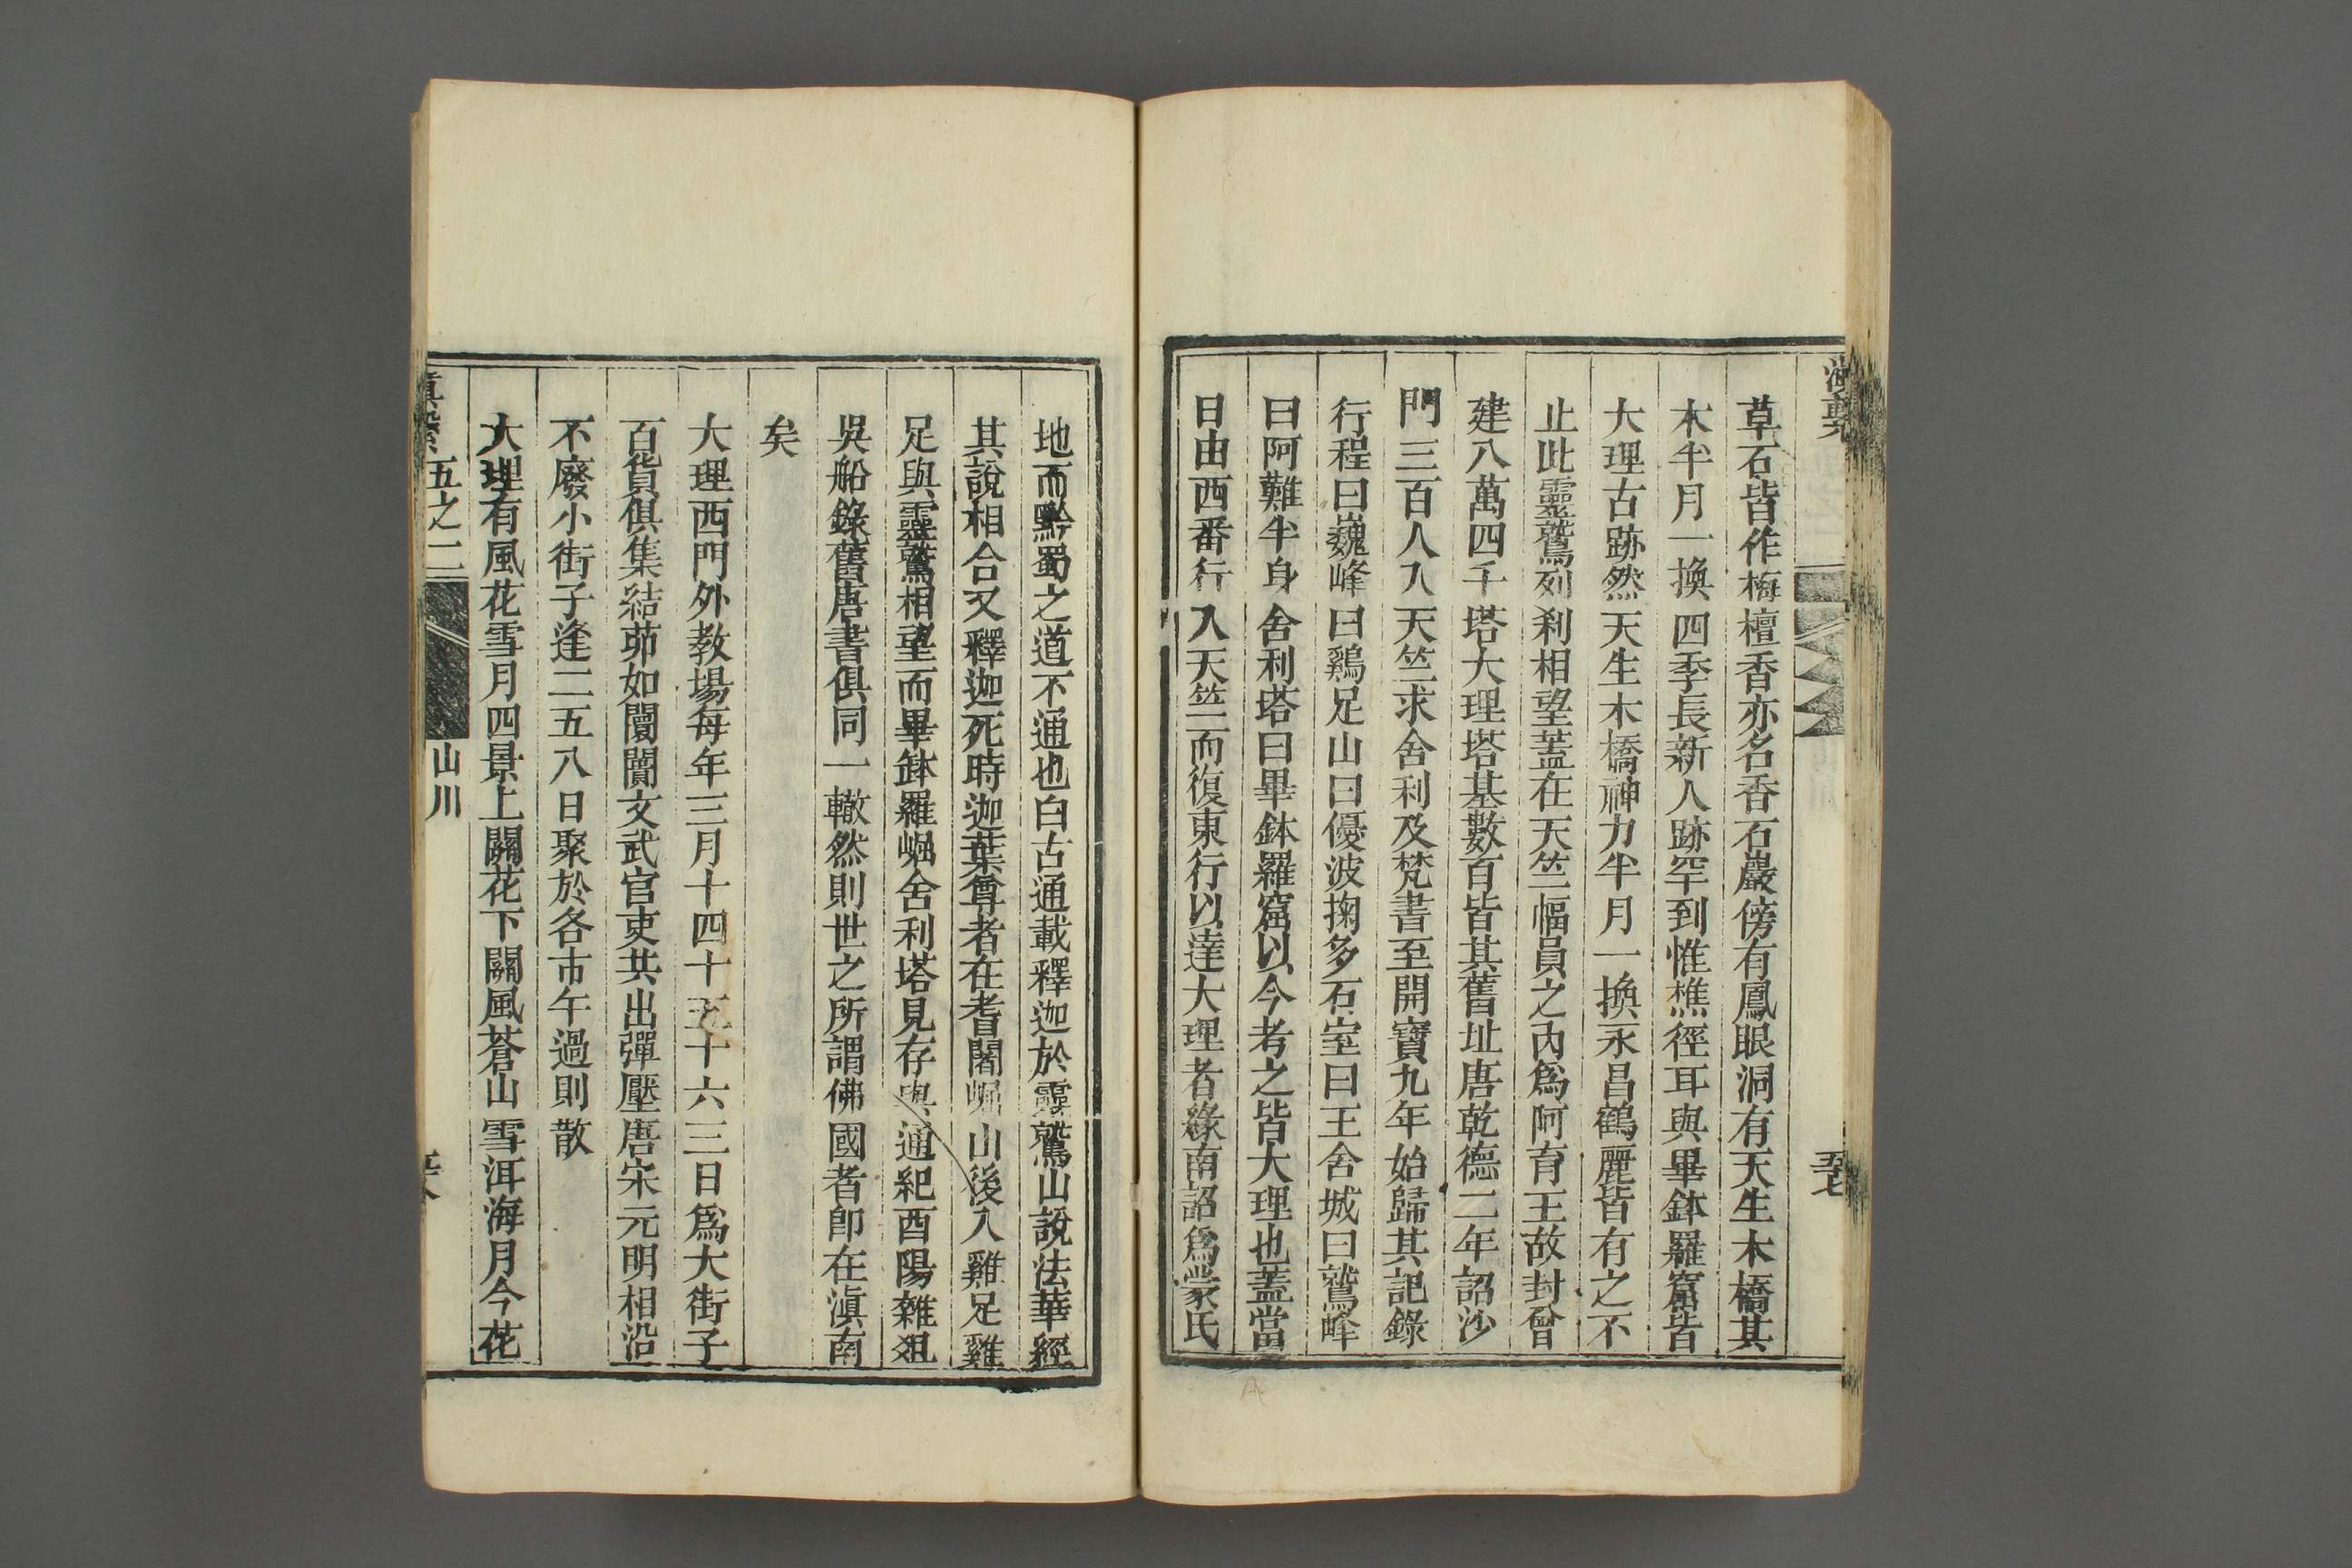 草石皆作栴檀香亦名香石巖傍有鳳眼洞有天生木橋其
木半月一換四季長新人跡罕到惟樵徑耳與畢鉢羅窟皆
大理古跡然天生木橋神力半月一換永昌鶴麗皆有之不
止此靈鷲列刹相望葢在天竺幅員之內爲阿育王故封曾
建八萬四千塔大理塔基數百皆其舊址唐乾德二年詔沙
門三百人入天竺求舍利及梵書至開寶九年始歸其記錄
行程曰巍峰曰鷄足山曰優波掬多石室曰王舍城曰鷲峰
曰阿難半身舍利塔曰畢鉢羅窟以今考之皆大理也葢當
日由西番行入天竺而復東行以達大理者緣南詔爲蒙氏
地而黔蜀之道不通也白古通載釋迦於靈鷲山說法華經
其說相合又釋迦死時迦葉尊者在耆闍崛山後入雞足雞
足與靈鷲相望而畢鉢羅崛舍利塔見存與通紀酉陽雜俎
吳船錄舊唐書俱同一轍然則世之所謂佛國者卽在滇南
矣
大理西門外教場每年三月十四十五十六三日爲大街子
百貨俱集結茆如闤闠文武官吏共出彈壓唐宋元明相沿
不廢小街子逢二五八日聚於各市午過則散
大理有風花雪月四景上關花下關風蒼山雪洱海月今花
滇繫 五之二 山川